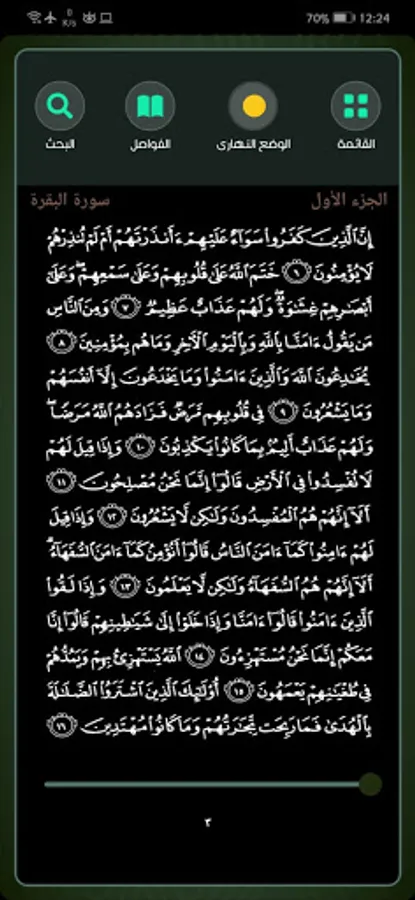 0 K/s 70% 12:24
القائمة الوضع النهاري الفواصل البحث
الجزء الأول سورة البقرة
إِنَّ ٱلَّذِينَ كَفَرُوا۟ سَوَآءٌ عَلَيْهِمْ ءَأَنذَرْتَهُمْ أَمْ لَمْ تُنذِرْهُمْ
لَا يُؤْمِنُونَ ٦ خَتَمَ ٱللَّهُ عَلَىٰ قُلُوبِهِمْ وَعَلَىٰ سَمْعِهِمْ ۖ وَعَلَىٰٓ
أَبْصَٰرِهِمْ غِشَٰوَةٌ ۖ وَلَهُمْ عَذَابٌ عَظِيمٌ ٧ وَمِنَ ٱلنَّاسِ
مَن يَقُولُ ءَامَنَّا بِٱللَّهِ وَبِٱلْيَوْمِ ٱلْءَاخِرِ وَمَا هُم بِمُؤْمِنِينَ ٨
يُخَٰدِعُونَ ٱللَّهَ وَٱلَّذِينَ ءَامَنُوا۟ وَمَا يَخْدَعُونَ إِلَّآ أَنفُسَهُمْ
وَمَا يَشْعُرُونَ ٩ فِى قُلُوبِهِم مَّرَضٌ فَزَادَهُمُ ٱللَّهُ مَرَضًا ۖ
وَلَهُمْ عَذَابٌ أَلِيمٌۢ بِمَا كَانُوا۟ يَكْذِبُونَ ١٠ وَإِذَا قِيلَ لَهُمْ
لَا تُفْسِدُوا۟ فِى ٱلْأَرْضِ قَالُوٓا۟ إِنَّمَا نَحْنُ مُصْلِحُونَ ١١
أَلَآ إِنَّهُمْ هُمُ ٱلْمُفْسِدُونَ وَلَٰكِن لَّا يَشْعُرُونَ ١٢ وَإِذَا قِيلَ
لَهُمْ ءَامِنُوا۟ كَمَآ ءَامَنَ ٱلنَّاسُ قَالُوٓا۟ أَنُؤْمِنُ كَمَآ ءَامَنَ ٱلسُّفَهَآءُ ۗ
أَلَآ إِنَّهُمْ هُمُ ٱلسُّفَهَآءُ وَلَٰكِن لَّا يَعْلَمُونَ ١٣ وَإِذَا لَقُوا۟
ٱلَّذِينَ ءَامَنُوا۟ قَالُوٓا۟ ءَامَنَّا وَإِذَا خَلَوْا۟ إِلَىٰ شَيَٰطِينِهِمْ قَالُوٓا۟ إِنَّا
مَعَكُمْ إِنَّمَا نَحْنُ مُسْتَهْزِءُونَ ١٤ ٱللَّهُ يَسْتَهْزِئُ بِهِمْ وَيَمُدُّهُمْ
فِى طُغْيَٰنِهِمْ يَعْمَهُونَ ١٥ أُو۟لَٰٓئِكَ ٱلَّذِينَ ٱشْتَرَوُا۟ ٱلضَّلَٰلَةَ
بِٱلْهُدَىٰ فَمَا رَبِحَت تِّجَٰرَتُهُمْ وَمَا كَانُوا۟ مُهْتَدِينَ ١٦
٣